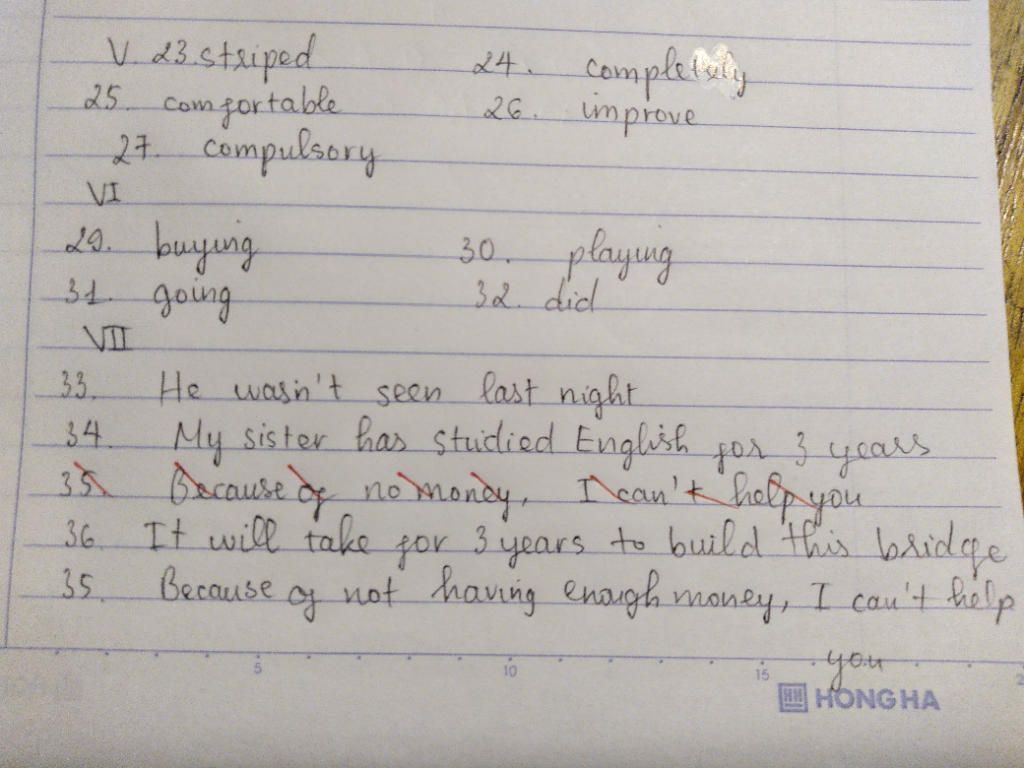 V. 23. striped 24. completely
25. comfortable 26. improve
27. compulsory
VI
29. buying 30. playing
31. going 32. did
VII
33. He wasn't seen last night
34. My sister has studied English for 3 years
35. Because of no money, I can't help you
36. It will take for 3 years to build this bridge
35. Because of not having enough money, I can't help
you
5 10 15 2
HH HONG HA